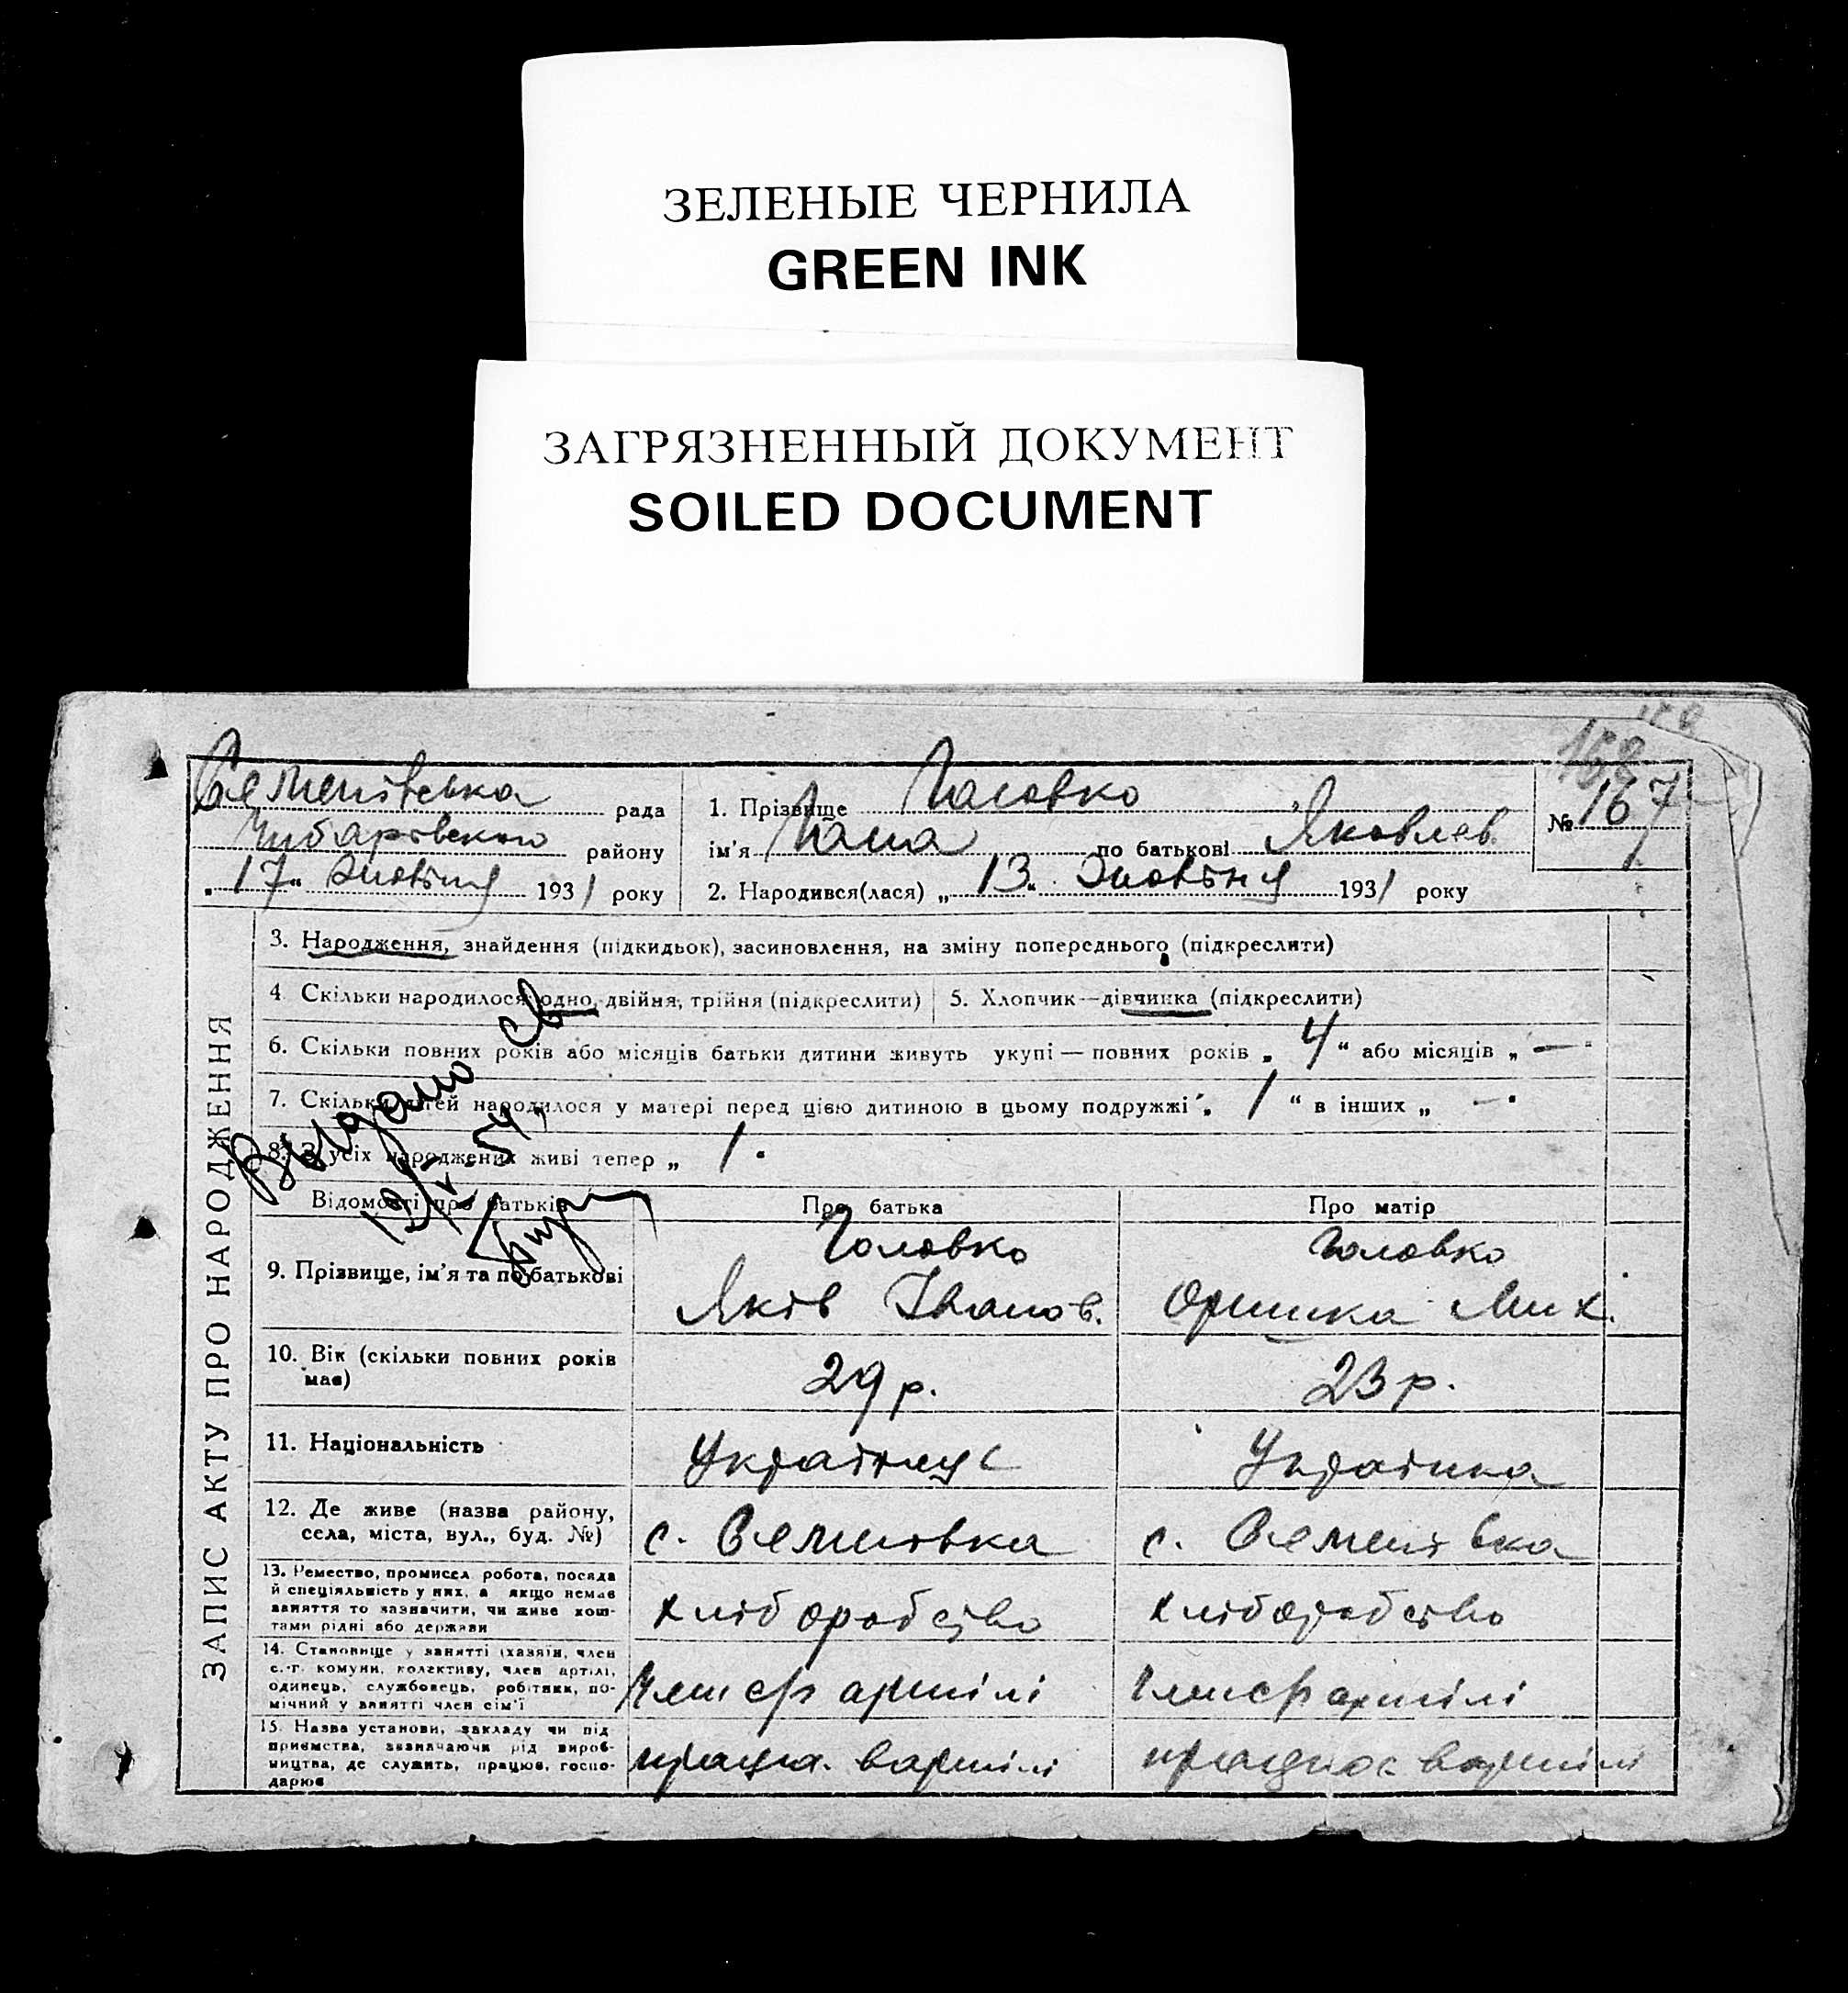 ЗЕЛЕНЫЕ ЧЕРНИЛА
GREEN INK
ЗАГРЯЗНЕННЫЙ ДОКУМЕНТ
SOILED DOCUMENT
158
Семенівська рада
Чубарівського району
„17“ Жовтня 1931 року
1. Прізвище Головко
ім'я по батькові Яковлев.
2. Народився(лася) „13“ Жовтня 1931 року
№ 167
ЗАПИС АКТУ ПРО НАРОДЖЕННЯ
3. Народження, знайдення (підкидьок), засиновлення, на зміну попереднього (підкреслити)
4. Скільки народилося: одно, двійня, трійня (підкреслити)
5. Хлопчик—дівчинка (підкреслити)
6. Скільки повних років або місяців батьки дитини живуть укупі — повних років „ 4 “ або місяців „ — “
7. Скільки дітей народилося у матері перед цією дитиною в цьому подружжі „ 1 “ в інших „ —
8. З усіх народжених живі тепер „ 1
Выдано св
Відомості про батьків
Про батька
Про матір
9. Прізвище, ім'я та по батькові
Головко
Яків Іванов.
Головко
Оришка Мих.
10. Вік (скільки повних років має)
29 р.
23 р.
11. Національність
Українець
Українка
12. Де живе (назва району,
села, міста, вул., буд. №)
с. Семенівка
с. Семенівка
13. Ремество, промисел, робота, посада
й спеціяльність у них, а якщо немає
заняття то зазначити, чи живе кош-
тами рідні або держави
хліборобство
хліборобство
14. Становище у занятті (хазяїн, член
с.-г. комуни, колективу, член артілі,
одинець, службовець, робітник, по-
мічний у занятті член сім'ї
член артілі
член артілі
15. Назва установи, закладу чи під
приємства, зазначаючи рід вироб-
ництва, де служить, працює, госпо-
дарює
працює в артілі